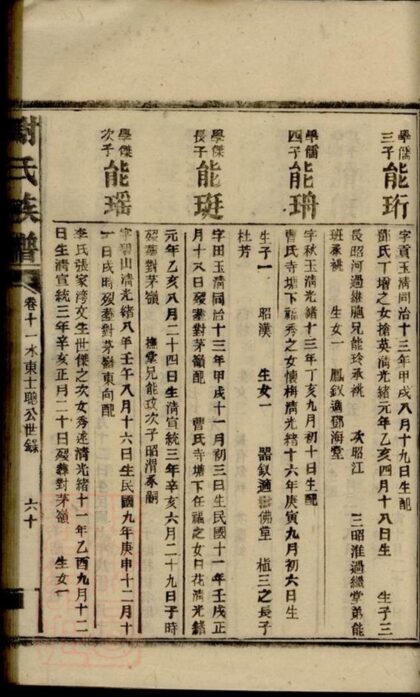 學儒三子 能珩
字貢玉清同治十三年甲戌八月十九日生配
鄧氏丁增之女搶英清光緒元年乙亥四月十八日生 生子三
長昭河過繼胞兄能玲承祧 次昭江 三昭淮過繼堂弟能
班承祧 生女一 鳳釵適鄧海堂
學儒四子 能珃
字秋玉清光緒十三年丁亥九月初十日生配
曹氏寺塘下福秀之女懷梅清光緒十六年庚寅九月初六日生
生子一 昭漢 生女一 器釵適曹佛章 植三之長子
杜芳
學傑長子 能珽
字田玉清同治十三年甲戌十一月初三日生民國十一年壬戌正
月十八日歿葬對茅嶺配 曹氏寺塘下任福之女日花清光緒
元年乙亥八月二十四日生清宣統三年辛亥六月二十九日子時
歿葬對茅嶺 撫堂兄能玫次子昭渭承嗣
學傑次子 能瑶
字碧山清光緒八年壬午八月十六日生民國九年庚申十二月十
一日戌時歿葬對茅嶺東向配
李氏張家灣文生世傑之次女秀蓮清光緒十一年乙酉九月十二
日生清宣統三年辛亥正月二十日歿葬對茅嶺 生女一
謝氏族譜 卷十一水東士聰公世錄 六十